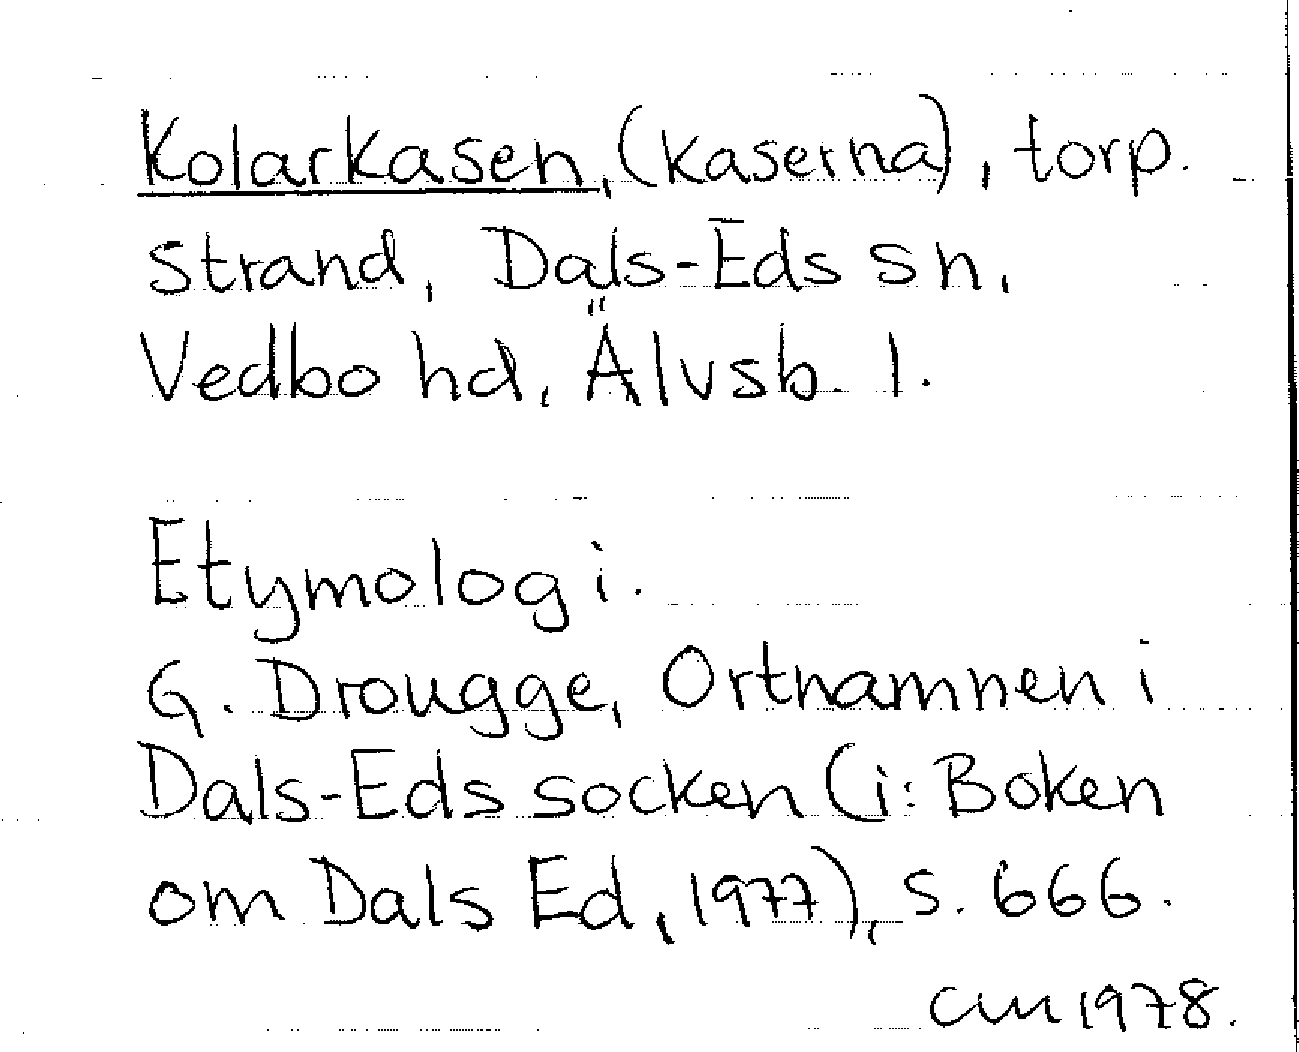 Kolarkasen, (Kaserna), torp.
Strand, Dals-Eds sn,
Vedbo hd, Älvsb. l.
Etymologi.
G. Drougge, Ortnamnen i
Dals-Eds socken (i: Boken
om Dals Ed, 1977), s. 666.
CM 1978.